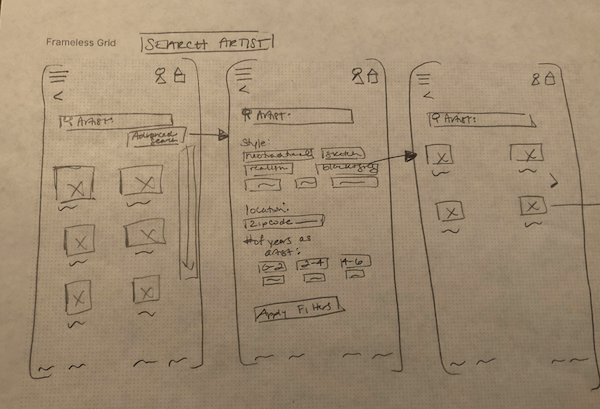 Frameless Grid
SEARCH ARTIST
Artist:
Advanced
Search
Artist:
Style:
neotraditional
sketch
realism
location:
Zipcode
# of years as
artist:
0-2
2-4
4-6
Apply Filters
Artist: